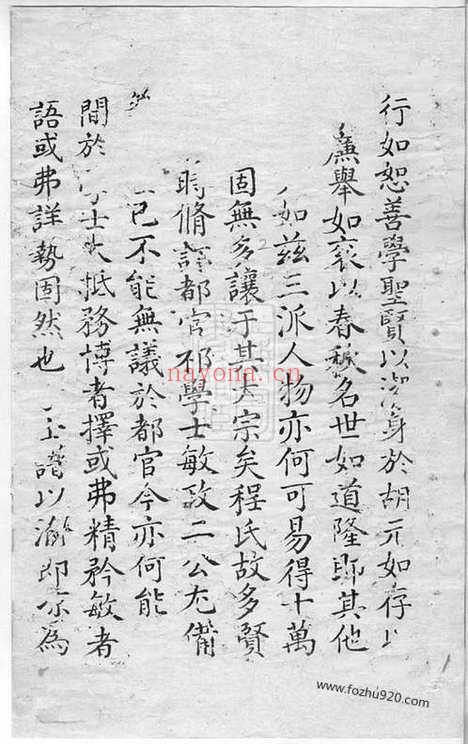 行如恕善學聖賢以潔身於胡元如存
廉舉如袞以春秋名世如道隆即其他
如茲三派人物亦何可易得十萬
固無多讓于其大宗矣程氏故多賢
時脩諮都官祁學士敏政二公尤備
已不能無議於都官今亦何能
間於 士大抵務博者擇或弗精矜敏者
語或弗詳勢固然也 以瀚即 為
nayona.cn
www.fozhu920.com